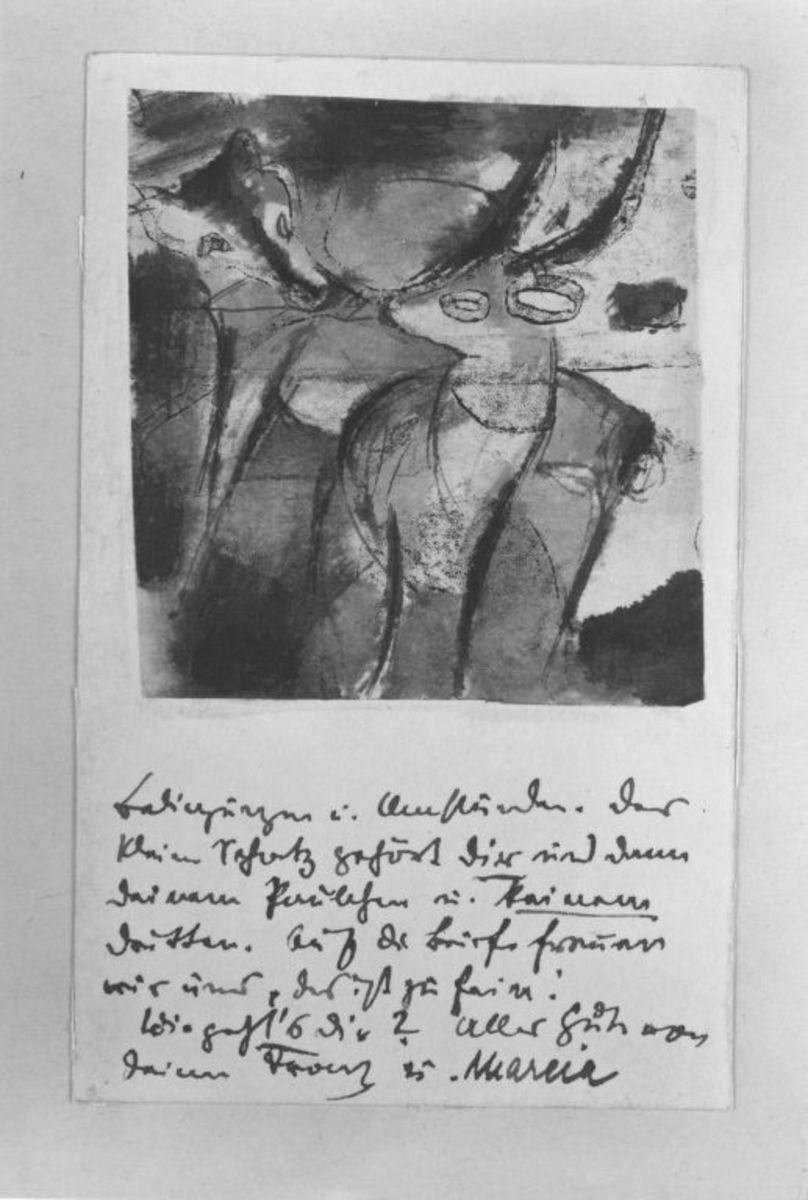 Bedingungen u. Umständen. Der
kleine Schatz gehört dir und dann
deinem Paulchen u. keinem
dritten. Auf die Briefe freuen
wir uns, das ist zu fein!
Wie geht's dir? Alles Gute von
deinem Franz u. Mareia